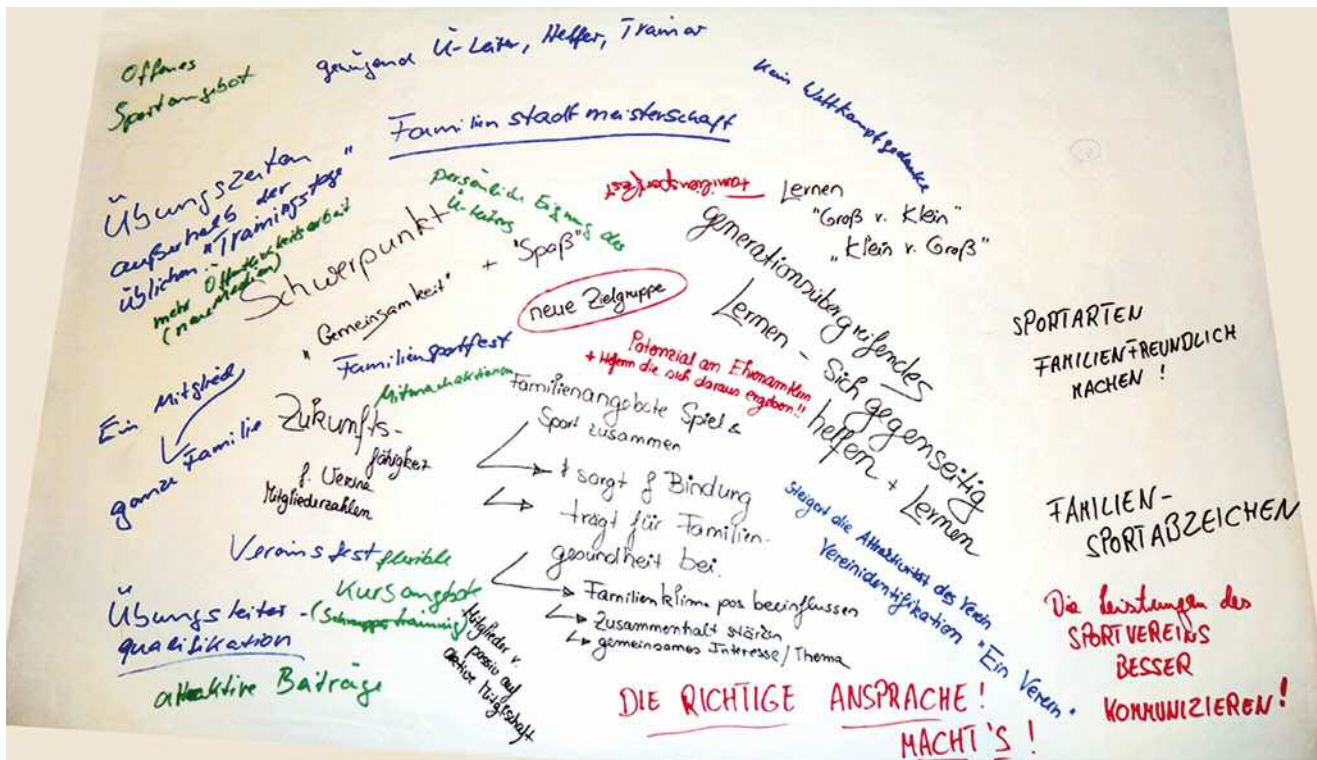 Offenes
Sportangebot
genügend Ü-Leiter, Helfer, Trainer
Kein Wettkampfgedanke
Familienstadtmeisterschaft
Übungszeiten
außerhalb der
üblichen "Trainingstage"
mehr Öffentlichkeitsarbeit
(neue Medien)
persönliche Eignung des
Ü-Leiters
Familiensportfest
Lernen
"Groß v. Klein"
"Klein v. Groß"
Schwerpunkt
"Gemeinsamkeit" + "Spaß"
neue Zielgruppe
generationsübergreifendes
Lernen - Sich gegenseitig
helfen + Lernen
SPORTARTEN
FAMILIENFREUNDLICH
MACHEN !
Familiensportfest
Mitmachaktionen
Potenzial an Ehrenamtlern
+ Helfern die sich daraus ergeben!!
Ein Mitglied
ganze Familie
Zukunfts-
fähigkeit
f. Vereine
Mitgliederzahlen
Familienangebote Spiel &
Sport zusammen
sorgt f Bindung
trägt für Familien-
gesundheit bei.
Familienklima pos beeinflussen
Zusammenhalt stärken
gemeinsames Interesse / Thema
Steigert die Attraktivität des Verein
Vereinidentifikation "Ein Verein"
FAMILIEN-
SPORTABZEICHEN
Vereinsfest
flexible
Kursangebote
(Schnuppertraining)
Übungsleiter-
qualifikation
attraktive Beiträge
Mitglieder v.
passiv auf
aktive Mitgliedschaft
Die Leistungen des
SPORTVEREINS
BESSER
KOMMUNIZIEREN!
DIE RICHTIGE ANSPRACHE!
MACHT'S !